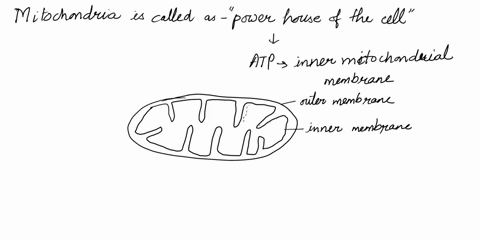 Mitochondria is called as - "power house of the cell"
ATP → inner mitochondrial
membrane
outer membrane
inner membrane